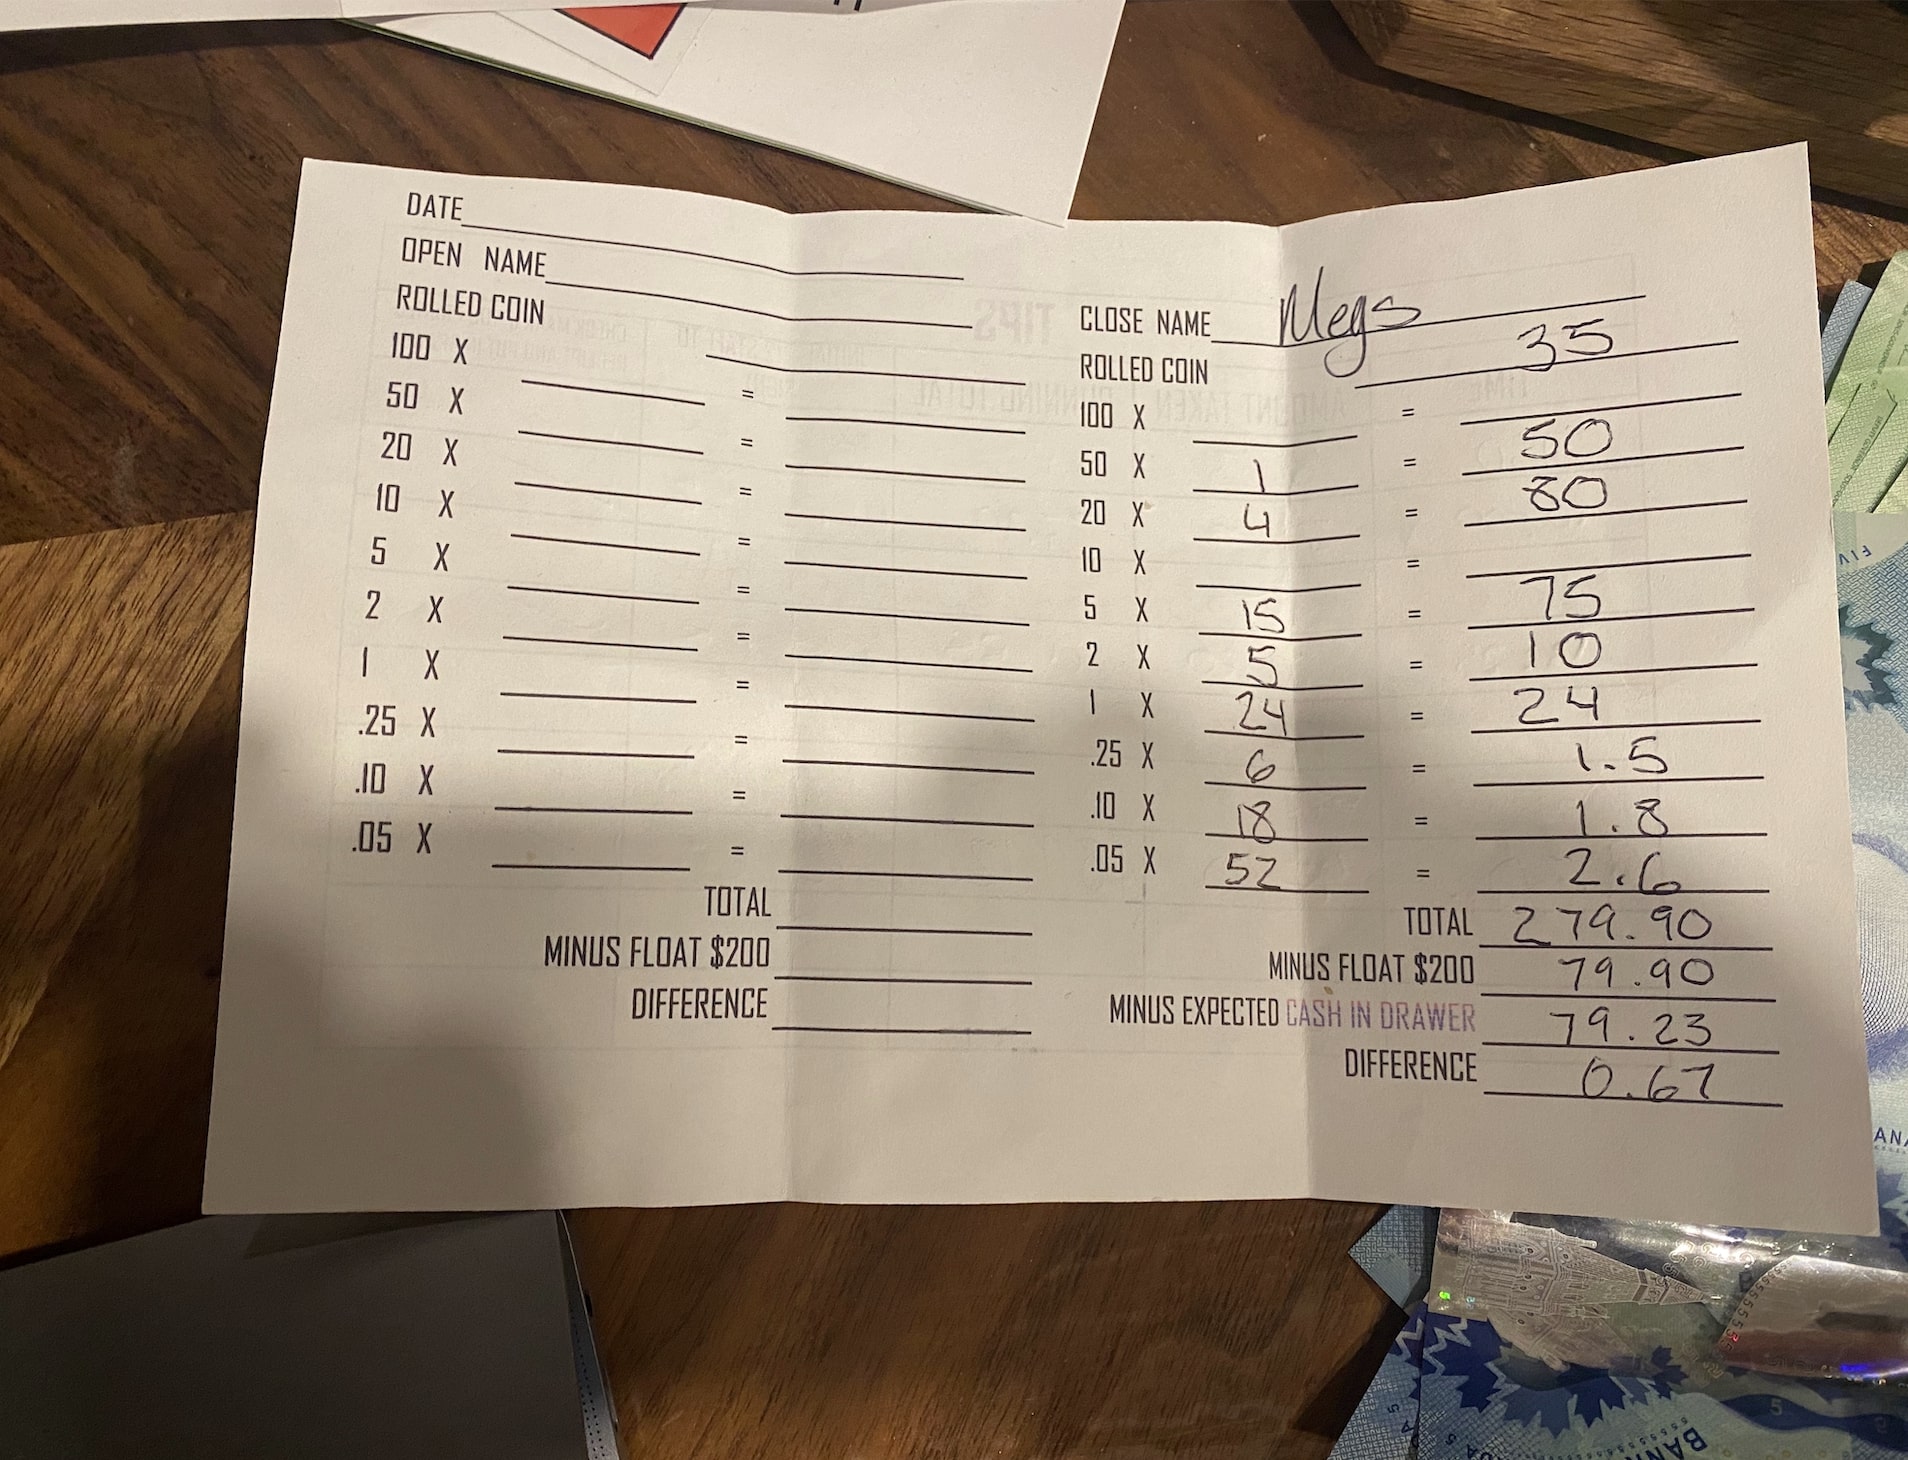 DATE
OPEN NAME
ROLLED COIN
100 X =
50 X =
20 X =
10 X =
5 X =
2 X =
1 X =
.25 X =
.10 X =
.05 X =
TOTAL
MINUS FLOAT $200
DIFFERENCE
CLOSE NAME Megs
ROLLED COIN 35
100 X =
50 X 1 = 50
20 X 4 = 80
10 X =
5 X 15 = 75
2 X 5 = 10
1 X 24 = 24
.25 X 6 = 1.5
.10 X 18 = 1.8
.05 X 52 = 2.6
TOTAL 279.90
MINUS FLOAT $200 79.90
MINUS EXPECTED CASH IN DRAWER 79.23
DIFFERENCE 0.67
TIPS
FIV
ANA
BAN